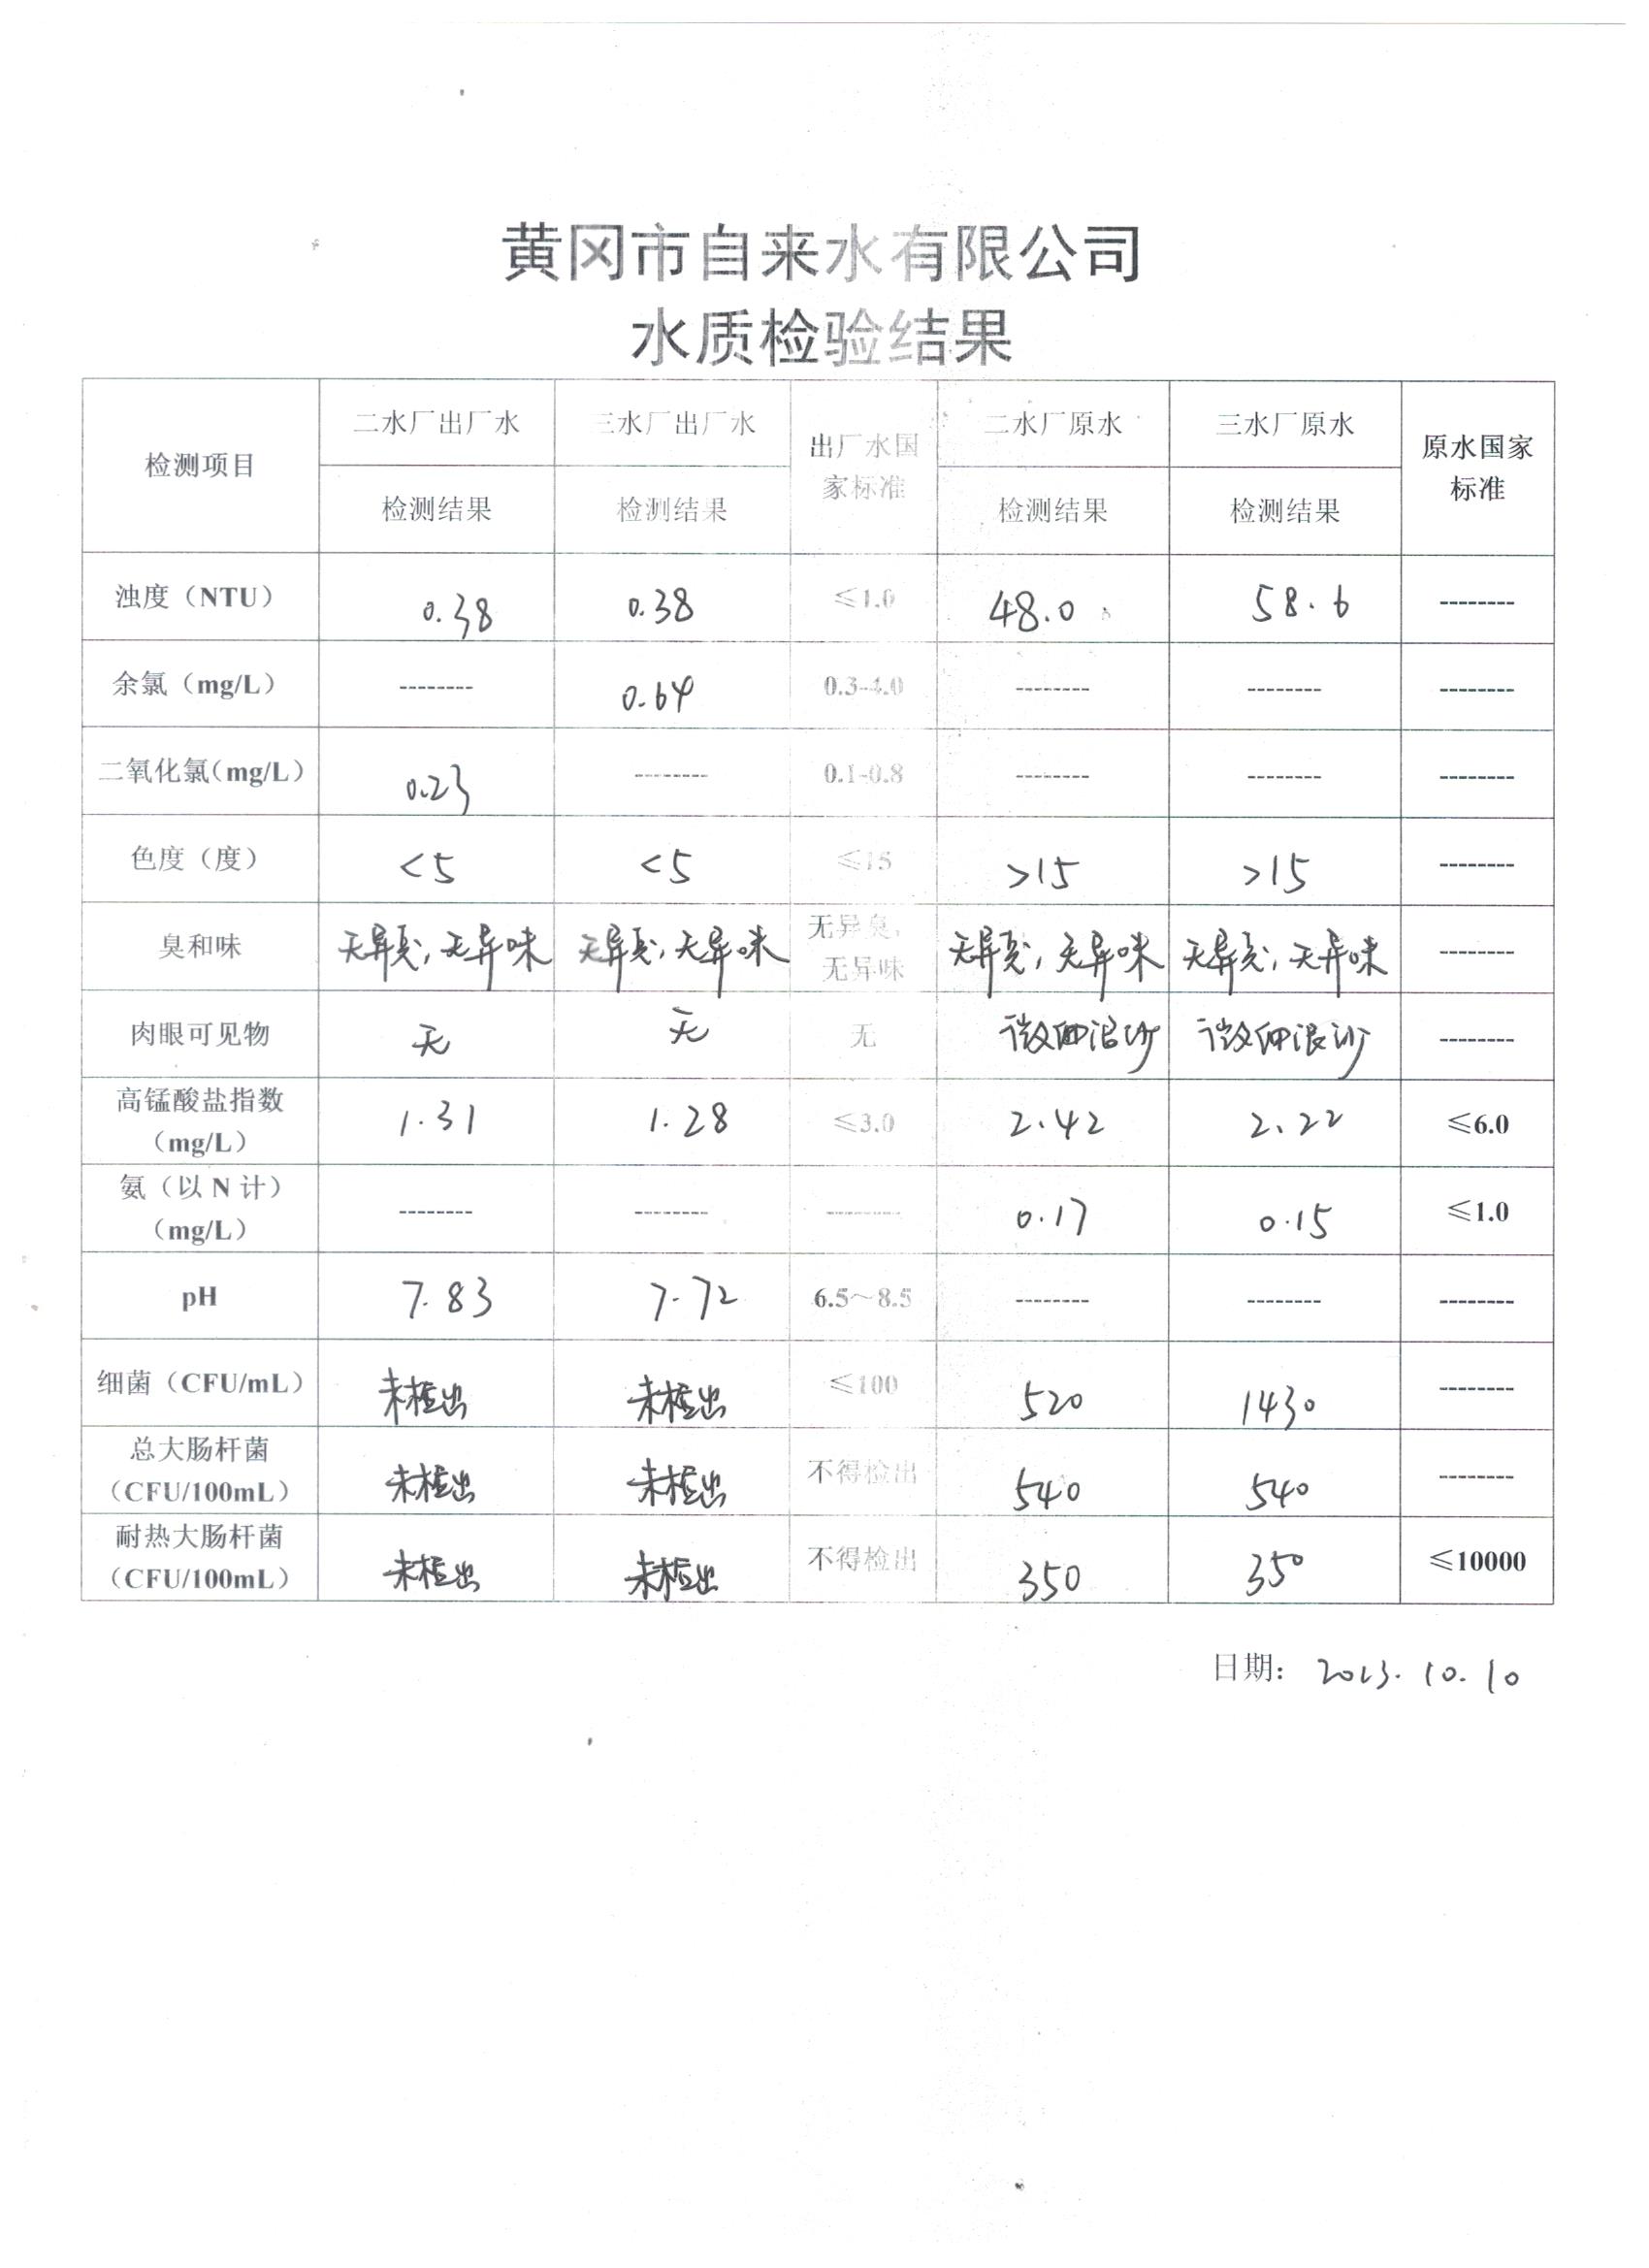 黄冈市自来水有限公司
水质检验结果
检测项目 二水厂出厂水 三水厂出厂水 出厂水国家标准 二水厂原水 三水厂原水 原水国家标准
检测结果 检测结果 检测结果 检测结果
浊度（NTU） 0.38 0.38 ≤1.0 48.0 58.6 --------
余氯（mg/L） -------- 0.64 0.3-4.0 -------- -------- --------
二氧化氯（mg/L） 0.23 -------- 0.1-0.8 -------- -------- --------
色度（度） <5 <5 ≤15 >15 >15 --------
臭和味 无异臭，无异味 无异臭，无异味 无异臭，无异味 无异臭，无异味 无异臭，无异味 --------
肉眼可见物 无 无 无 微细泥沙 微细泥沙 --------
高锰酸盐指数（mg/L） 1.31 1.28 ≤3.0 2.42 2.22 ≤6.0
氨（以 N 计）（mg/L） -------- -------- -------- 0.17 0.15 ≤1.0
pH 7.83 7.72 6.5～8.5 -------- -------- --------
细菌（CFU/mL） 未检出 未检出 ≤100 520 1430 --------
总大肠杆菌（CFU/100mL） 未检出 未检出 不得检出 540 540 --------
耐热大肠杆菌（CFU/100mL） 未检出 未检出 不得检出 350 350 ≤10000
日期： 2023.10.10